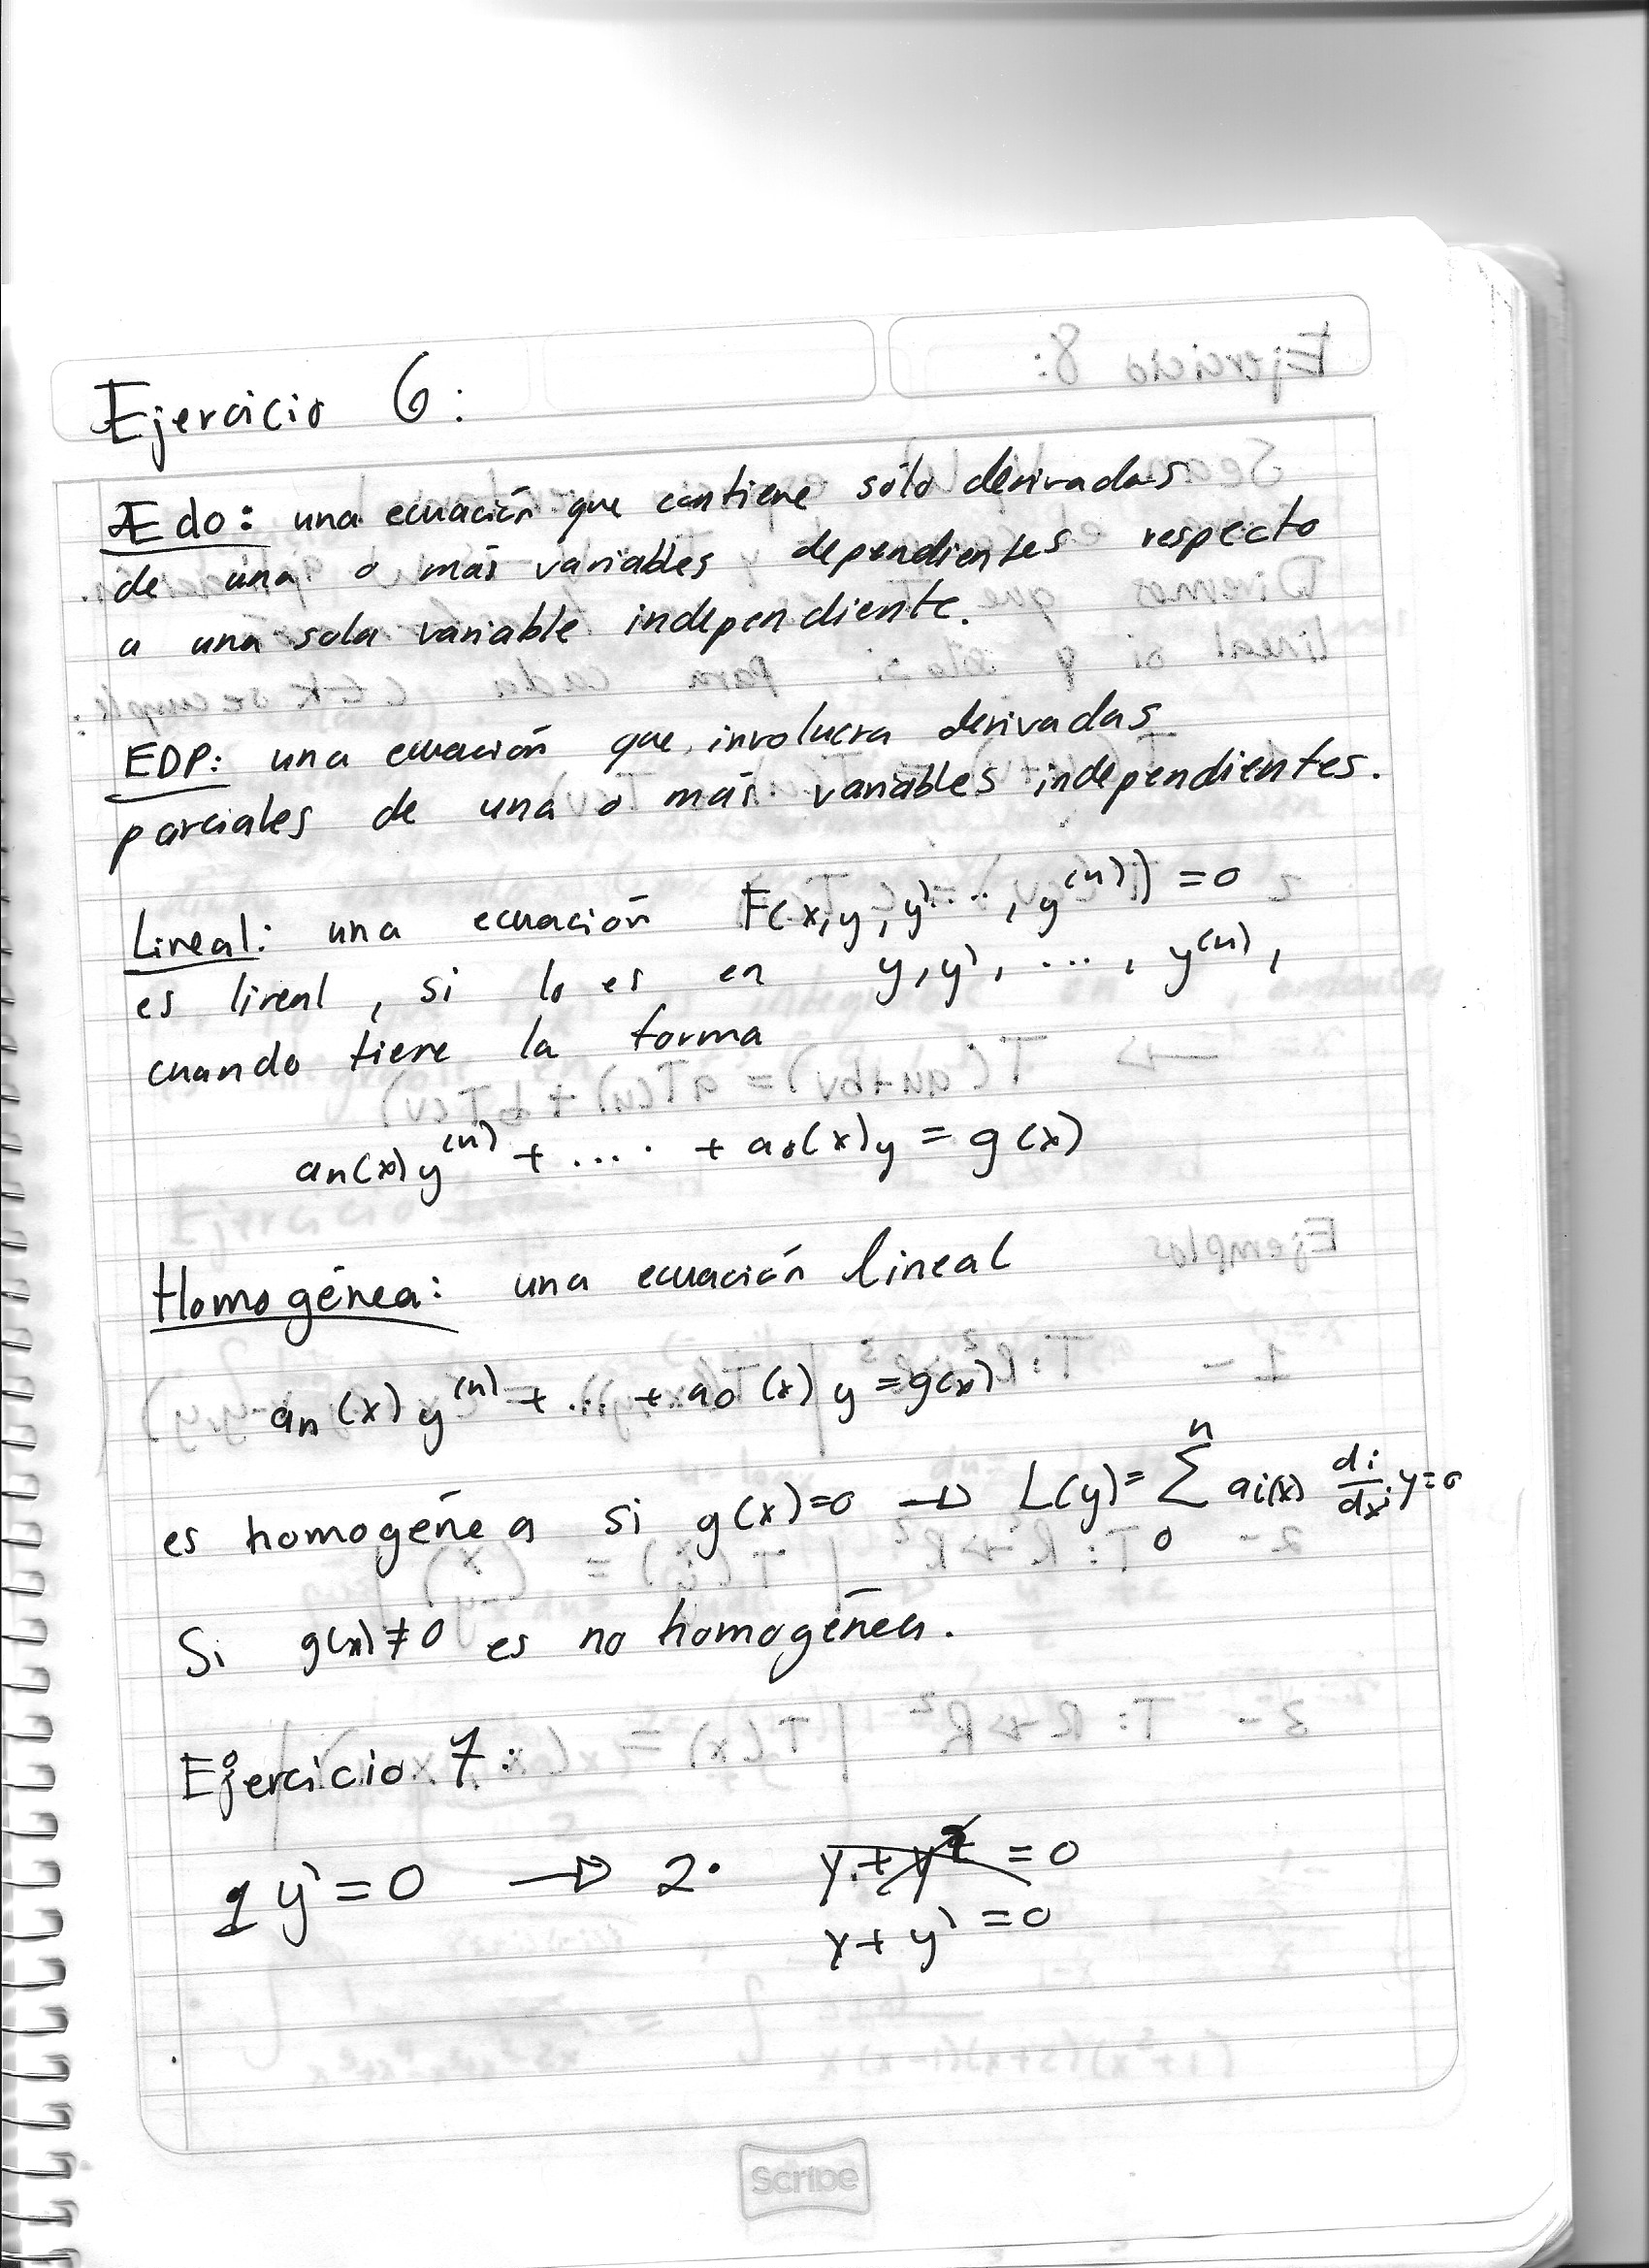 Ejercicio 6:
Edo: una ecuación que contiene sólo derivadas
de una o más variables dependientes respecto
a una sola variable independiente.
EDP: una ecuación que involucra derivadas
parciales de una o más variables independientes.
Lineal: una ecuación F(x,y,y',...,y^(n)) = 0
es lineal, si lo es en y, y', ..., y^(n),
cuando tiene la forma
an(x)y^(n) + .... + a0(x)y = g(x)
Homogénea: una ecuación lineal
an(x)y^(n) + ... + a0(x)y = g(x)
es homogénea si g(x)=0 → L(y) = Σ_0^n ai(x) di/dx^i y=0
Si g(x)≠0 es no homogénea.
Ejercicio 7:
1 y' = 0 → 2. = 0
y + y' = 0
Scribe